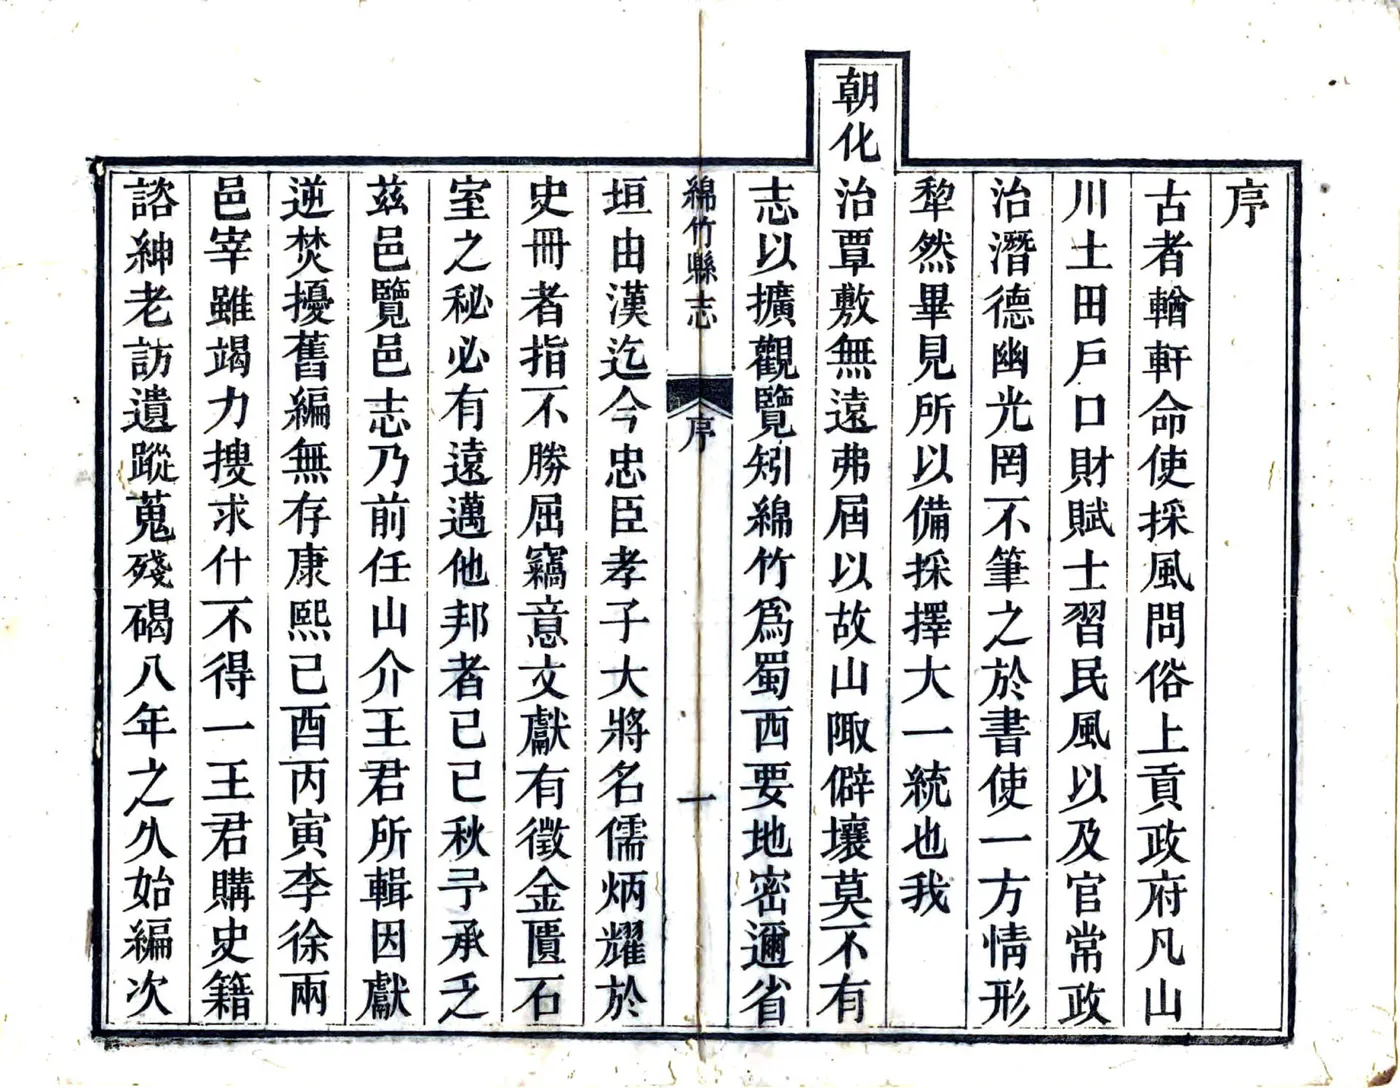 序
古者輶軒命使採風問俗上貢政府凡山
川土田戶口財賦士習民風以及官常政
治潛德幽光罔不筆之於書使一方情形
犂然畢見所以備採擇大一統也我
朝化治覃敷無遠弗屆以故山陬僻壤莫不有
志以擴觀覽矧綿竹爲蜀西要地密邇省
綿竹縣志
序
一
垣由漢迄今忠臣孝子大將名儒炳耀於
史冊者指不勝屈竊意文獻有徵金匱石
室之秘必有遠邁他邦者已巳秋予承乏
茲邑覽邑志乃前任山介王君所輯因獻
逆焚擾舊編無存康熙己酉丙寅李徐兩
邑宰雖竭力搜求什不得一王君購史籍
諮紳老訪遺蹤蒐殘碣八年之久始編次